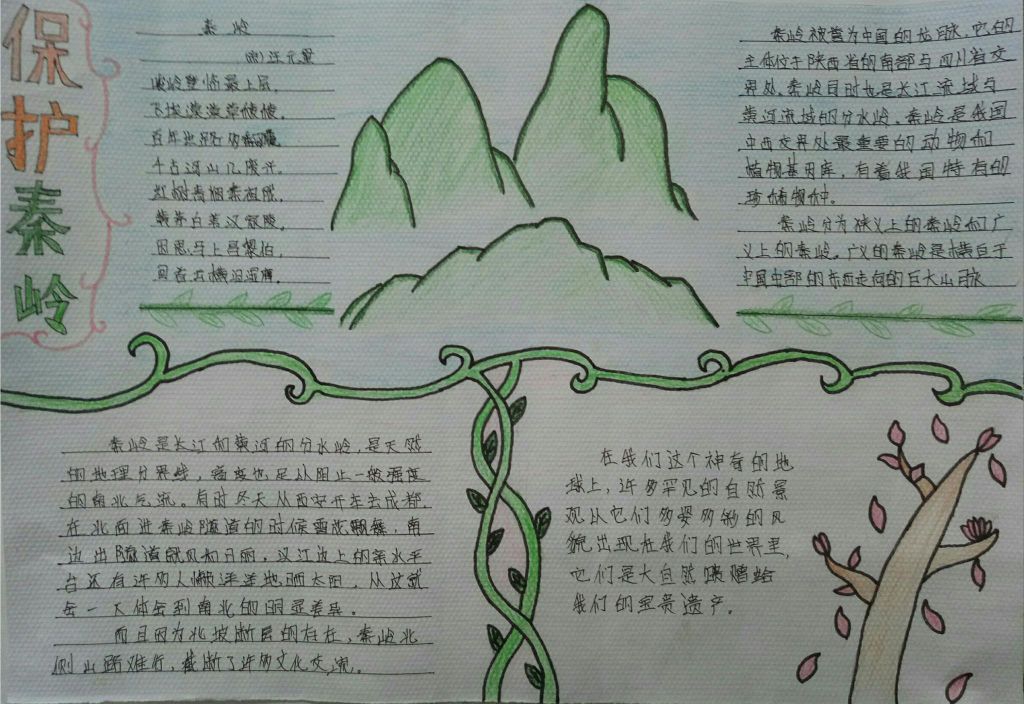 保护秦岭
秦岭
(明)汪元量
峻岭登临最上层,
飞埃漠漠草
百年世路多
千古河山几废兴。
红树青烟秦祖陇,
黄茅白苇汉家陵。
因思马上昌黎伯,
回首云横泪湿膺。
秦岭被誉为中国的龙脉,它的
主体位于陕西省的南部与四川省交
界处,秦岭同时也是长江流域与
黄河流域的分水岭。秦岭是我国
中西交界处最重要的动物和
植物基因库,有着我国特有的
珍植物种。
秦岭分为狭义上的秦岭和广
义上的秦岭。广义的秦岭是横亘于
中国中部的东西走向的巨大山脉
秦岭是长江和黄河的分水岭,是天然
的地理分界线,高度也足以阻止一般强度
的南北气流。有时冬天从西安开车去成都,
在北面进秦岭隧道的时候雪花飘飘,南
边出隧道就风和日丽,汉江边上的亲水平
台还有许多人懒洋洋地晒太阳,从这就
会一下体会到南北的明显差异。
而且因为北坡断层的存在,秦岭北
侧山路难行,截断了许多文化交流。
在我们这个神奇的地
球上,许多罕见的自然景
观以它们多姿多彩的风
貌出现在我们的世界里,
它们是大自然馈赠给
我们的宝贵遗产。